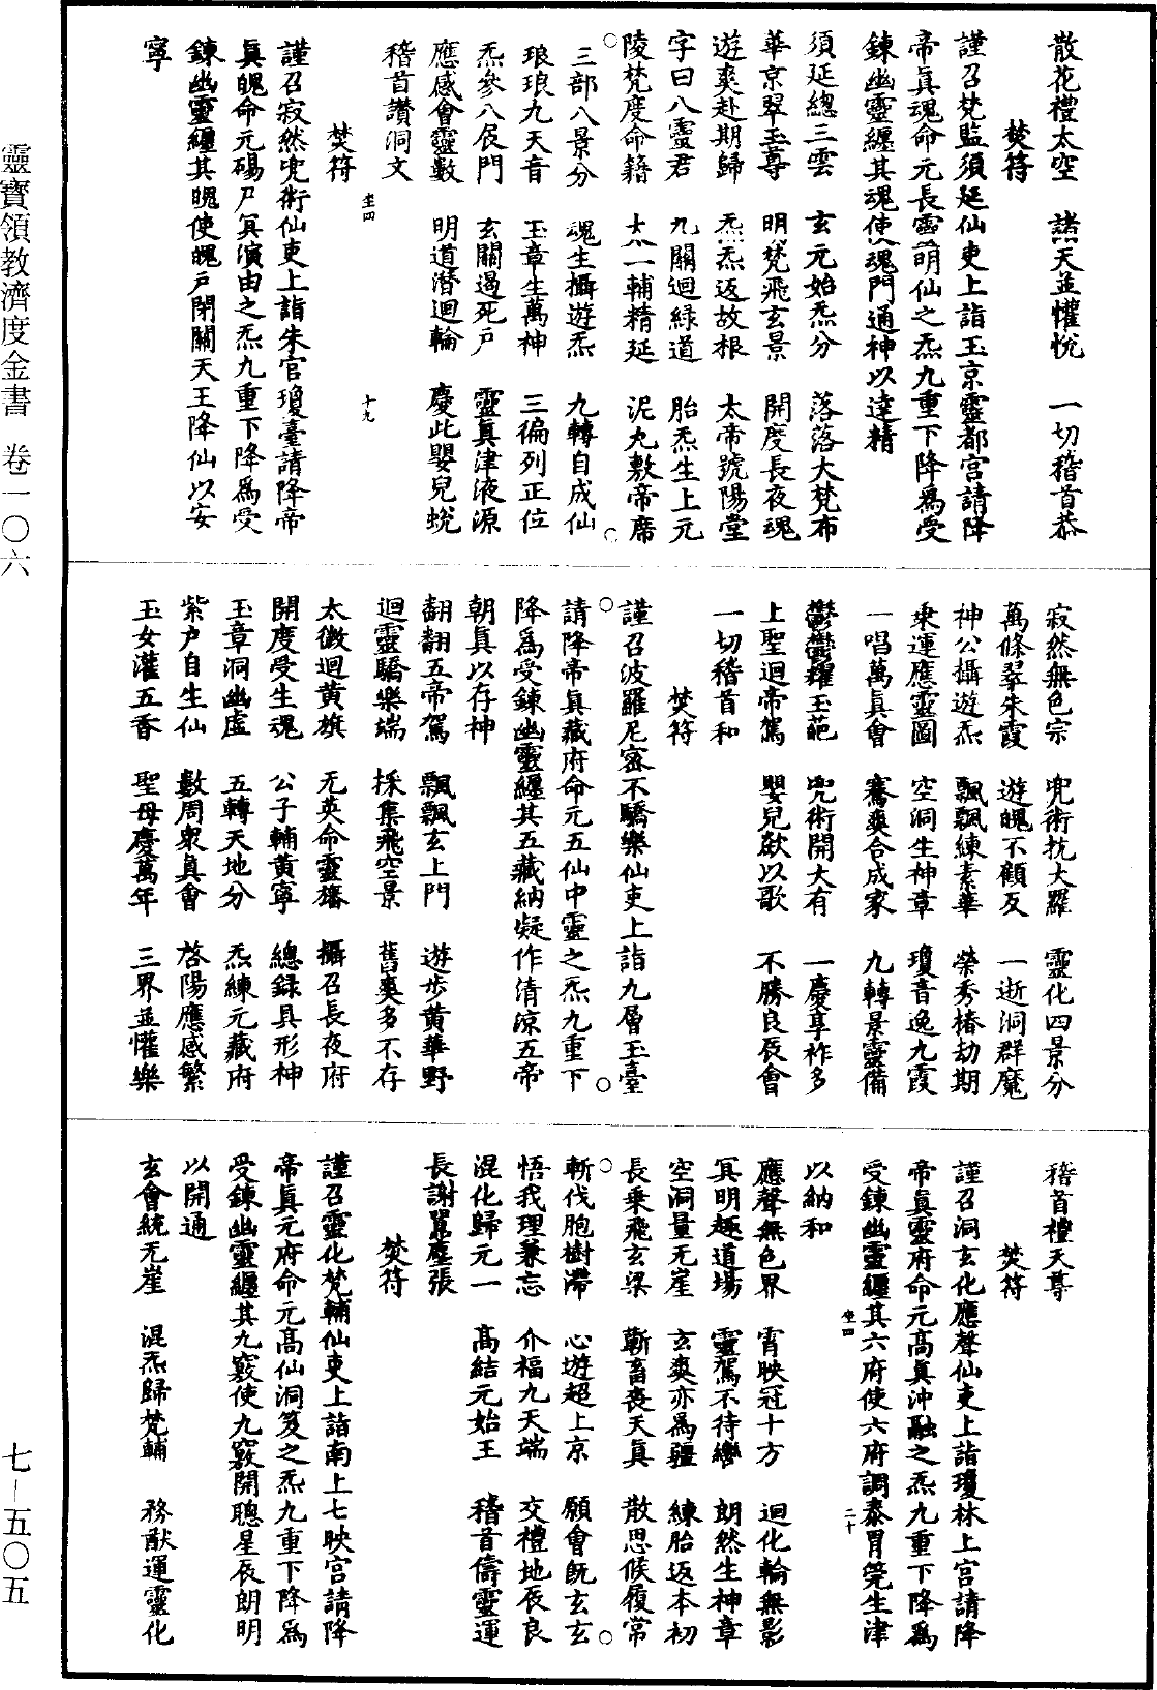 散花禮太空　諸天並懽悅　一切稽首恭
焚符
謹召梵監須延仙吏上詣玉京靈都宮請降
帝真魂命元長靈明仙之炁九重下降為受
鍊幽靈纏其魂使魂門通神以達精
須延總三雲　玄元始炁分　落落大梵布
華京翠玉尊　明梵飛玄景　開度長夜魂
遊爽赴期歸　炁炁返故根　太帝號陽堂
字曰八靈君　九關迴綠道　胎炁生上元
陵梵度命籍　太一輔精延　泥丸敷帝席
三部八景分　魂生攝遊炁　九轉自成仙
琅琅九天音　玉章生萬神　三徧列正位
炁參八辰門　玄關遏死戶　靈真津液源
應感會靈數　明道潛迴輪　慶此嬰兒蛻
稽首讚洞文
坐四　十九
焚符
謹召寂然兜術仙吏上詣朱官瓊臺請降帝
真魄命元碭尸冥演由之炁九重下降為受
鍊幽靈纏其魄使魄戶閉關天王降仙以安
寧
寂然無色宗　兜術抗大羅　靈化四景分
萬條翠朱霞　遊魄不顧反　一逝洞群魔
神公攝遊炁　飄飄練素華　榮秀椿劫期
乘運應靈圖　空洞生神章　瓊音逸九霞
一唱萬真會　騫爽合成家　九轉景靈備
鬱鬱耀玉葩　兜術開大有　一慶享祚多
上聖迴帝駕　嬰兒歘以歌　不勝良辰會
一切稽首和
焚符
謹召波羅尼密不驕樂仙吏上詣九層玉臺
請降帝真藏府命元五仙中靈之炁九重下
降為受鍊幽靈纏其五藏納凝作清涼五帝
朝真以存神
翻翻五帝駕　飄飄玄上門　遊步黃華野
迴靈驕樂端　採集飛空景　舊爽多不存
太微迴黃旗　无英命靈旛　攝召長夜府
開度受生魂　公子輔黃寧　總錄具形神
玉章洞幽虛　五轉天地分　炁練元藏府
紫戶自生仙　數周眾真會　啓陽應感繁
玉女灌五香　聖母慶萬年　三界並懽樂
稽首禮天尊
焚符
謹召洞玄化應聲仙吏上詣瓊林上宮請降
帝真靈府命元高真沖融之炁九重下降為
受鍊幽靈纏其六府使六府調泰胃筦生津
坐四　二十
以納和
應聲無色界　霄映冠十方　迴化輪無影
冥明趣道場　靈駕不待轡　朗然生神章
空洞量无崖　玄爽亦為疆　練胎返本初
長乘飛玄梁　蘄畜喪天真　散思候履常
斬伐胞樹滯　心遊超上京　願會既玄玄
悟我理兼忘　介福九天端　交禮地辰良
混化歸元一　高結元始王　稽首儔靈運
長謝囂塵張
焚符
謹召靈化梵輔仙吏上詣南上七映宮請降
帝真元府命元高仙洞笈之炁九重下降為
受鍊幽靈纏其九竅使九竅開聰星辰朗明
以開通
玄會統无崖　混炁歸梵輔　務猷運靈化
靈寶領教濟度金書　卷一〇六
七—五〇五